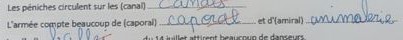 Les péniches circulent sur les (canal) canaux
L'armée compte beaucoup de (caporal) caporal et d'(amiral) animalerie
du 14 juillet attirent beaucoup de danseurs.